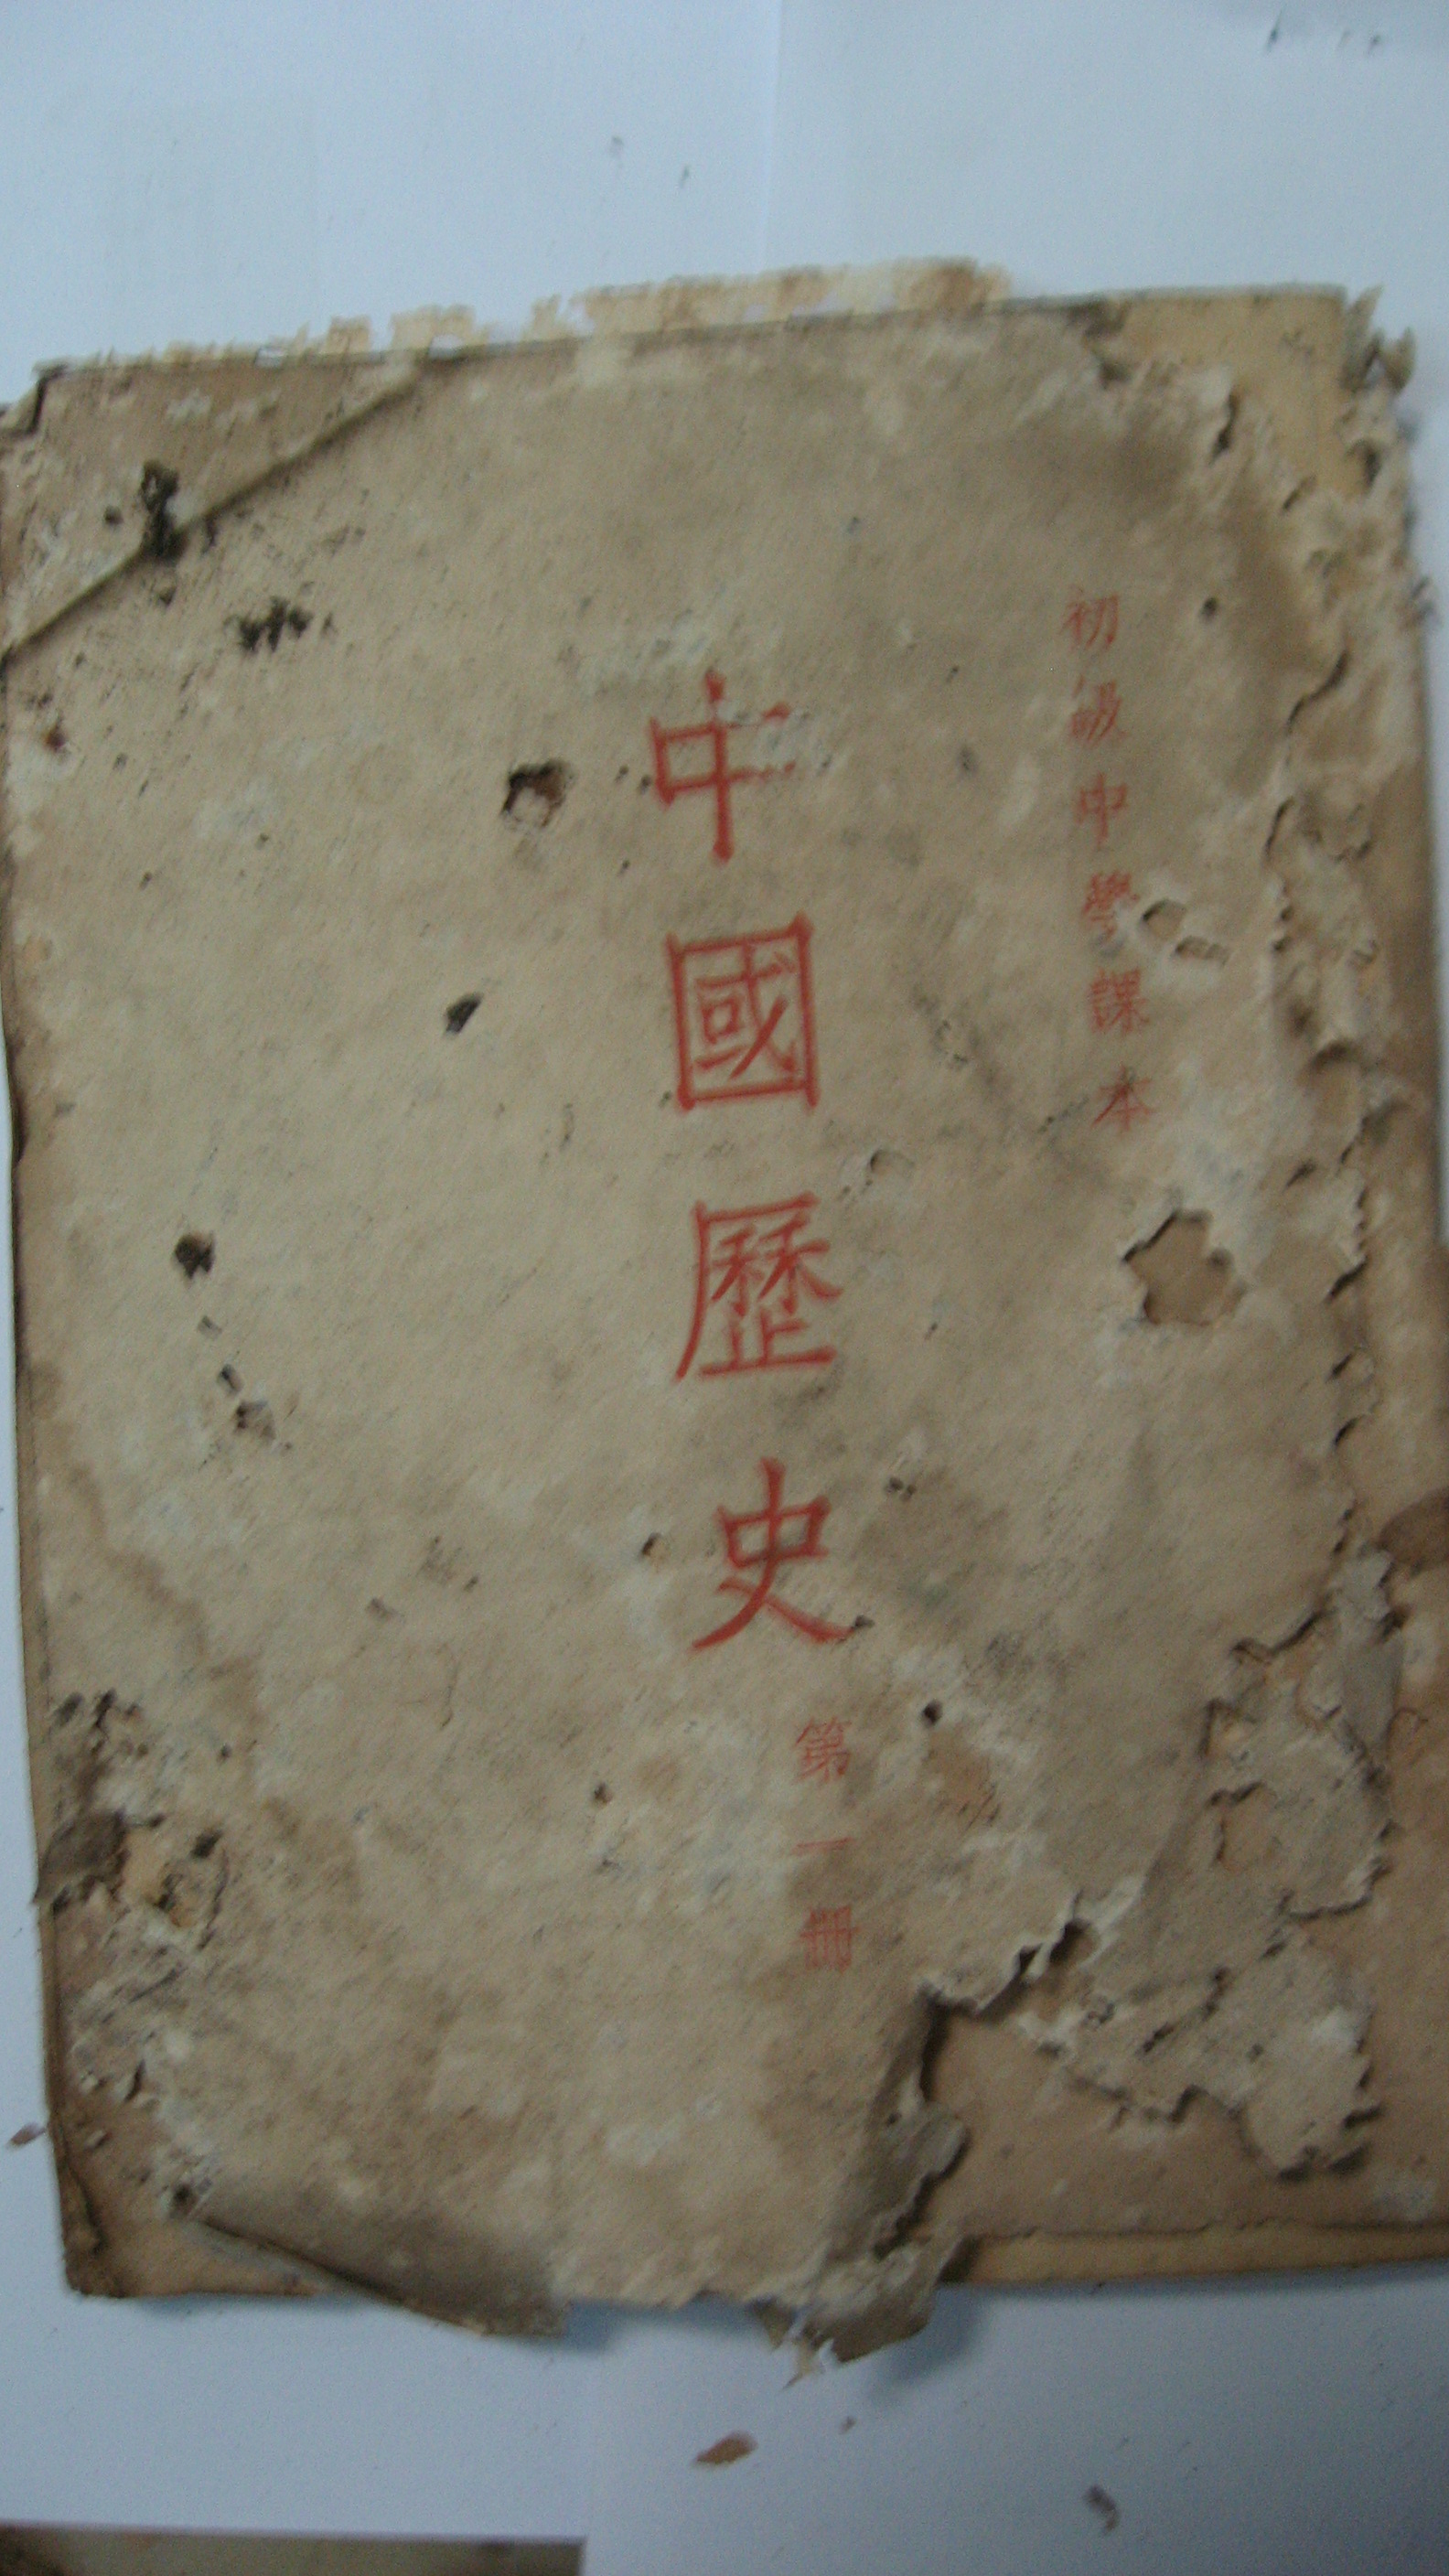 初級中學課本
中國歷史
第一冊